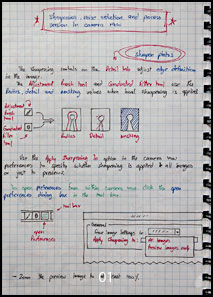 Sharpening, noise reduction, and process
version in camera Raw
Sharpen photos
The sharpening controls on the Detail tab adjust edge definition
in the image.
The Adjustment Brush tool and Graduated Filter tool use the
Radius, detail and masking values when local sharpening is applied
Adjustment
Brush tool
Graduated
Filter tool
Radius Detail Masking
Use the Apply Sharpening to option in the camera raw
preferences to specify whether sharpening is applied to all images
or just to previews.
To open preferences from within camera raw, click the open
preferences dialog box in the tool box.
tool box
open
Preferences
General
Save Image Settings in
Apply Sharpening to: All images
Preview images only
→ Zoom the preview image to
01